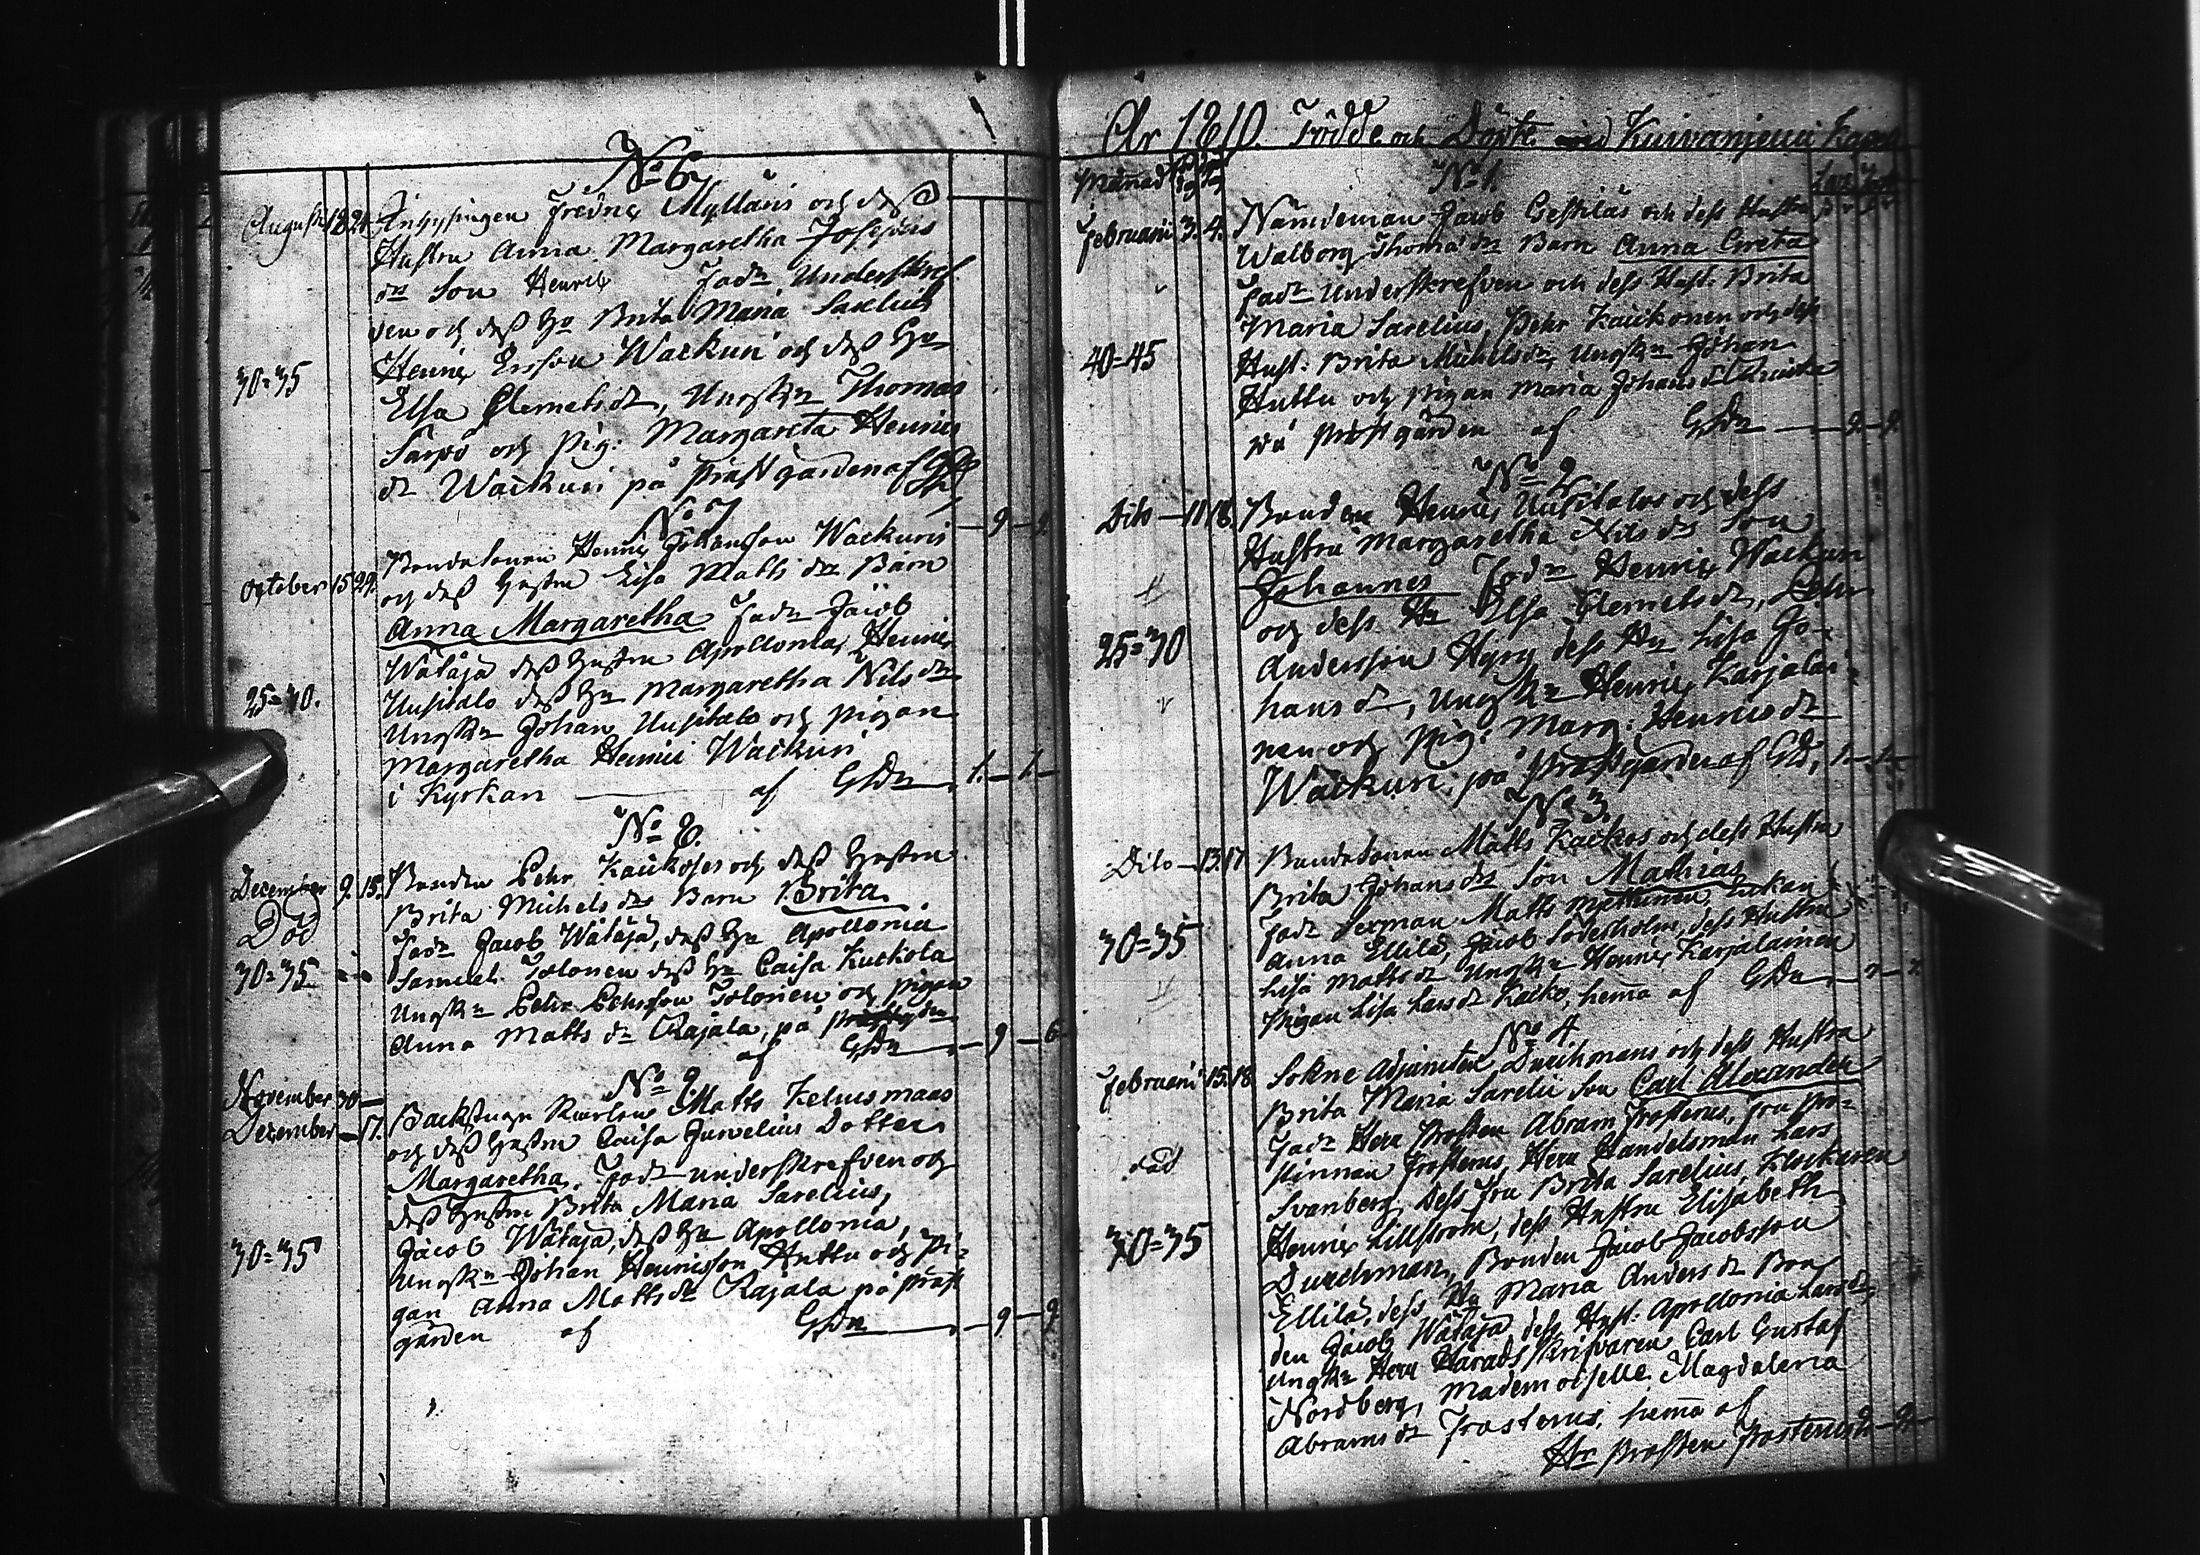 No 6
Augusti 18 24. Inhysingen Fredric Mylläris och dess
Hustru Anna Margaretha Josephs
dr Son Henric Fadr Underskref
ven och dess Hu Brita Maria Sarelius
Henric Ersson Wackuri och dess Hu
30=35
Elsa Clemetsdr, Ungkn Thomas
Sarpo och Pig: Margareta Henrics
dr Wackuri på Prästgården af GDn
9 - 9
No 7
October 15 29. Bondesonen Henric Johansson Wackuris
och dess Hustru Lisa Matts dr Barn
Anna Margaretha Fadr Jacob
Wätäjä dess Hustru Apollonia, Henric
25=30.
Uusitalo dess Hu Margaretha Nils dr
Ungkn Johan Uusitalo och pigan
Margaretha Henrici Wackuri
i Kyrkan af GDn 1. - 1.
No 8.
December 9. 15. Bonden Pehr Kaickoses och dess Hustru
Död
Brita Michels dr Barn Brita
Fadr Jacob Wätäjä, dess Hu Apollonia
30=35
Samuel Tolonen dess Hu Caisa Kuckola
Ungkn Pehr Pehrsson Tolonen och pigan
Anna Matts dr Rajala, på Prästgdn
af GDn 9 - 6
No 9.
November 30 Backstugu Matts Keltusmaas
December 17. och dess Hustru Caisa Juvelius Dotter
Margaretha. Fadr underskrefven och
dess Hustru Brita Maria Sarelius,
Jacob Wätäjä, dess Hu Apollonia,
30=35
Ungkn Johan Henricsson Huttu och Pi-
gan Anna Matts dr Rajala på präst
gården af GDn 9 - 9
År 1810. Födde och Döpte vid Kuivaniemi
Månad
No 1.
Februarii 3. 4. Nämdeman Jacob Gestiläs och dess Hustru
Walborg Thomæ dr Barn Anna Greta
Fadr Underskrefven och dess Hust: Brita
Maria Sarelius, Pehr Kaickonen och dess
40=45
Hust: Brita Michelsdr, Ungkn Johan
Huttu och pigan Maria Johansdr
på prästgården af GDn 9 - 9.
No 2
Dito 11 18. Bonden Henric Uusitalos och dess
Hustru Margaretha Nils dr Son
Johannes Fadr Henric Wackuri
och dess Hu Elsa Clemetsdr, Pehr
25=30
Andersson Hyry dess Hu Lisa Jo-
hansdr, Ungkn Henric Karjalai-
nen och Pig: Marg: Henricsdr
Wackuri på prästgården af GD, 1. - 1.
No 3.
Dito 13. 17. Bondesonen Matts Kaickos och dess Hustru
Brita Johans dr Son Mathias
Fadr Matts Myttinen, Enkan
30=35
Anna Ellilä, Jacob Söderholm, dess Hustru
Lisa Mattsdr Ungkn Henric Karjalainen
Pigan Lisa Larsdr Kaicko, hema af GDn
No 4
Februarii 15. 18. Sokne Adjuncten Durchmans och dess Hustru
Brita Maria Sarelii Son Carl Alexander
Fadr Herr Prosten Abram Frosterus, Fru Pro-
död
stinnan Frosterus, Herr Handelsman Lars
Svanberg, Dess Fru Brita Sarelius, Klockaren
30=35
Henric Lillström, dess Hustru Elisabeth
Durchman, Bonden Jacob Jacobsson
Ellilä, dess Hu Maria Andersdr Bon
den Jacob Wätäjä, dess Hust: Apollonia Larsdr
Ungkn Herr Häradsskrifvaren Carl Gustaf
Nordberg, Mademoiselle Magdalena
Abramsdr Frosterus, hema af
Hr Prosten Frosterus 9 - 9